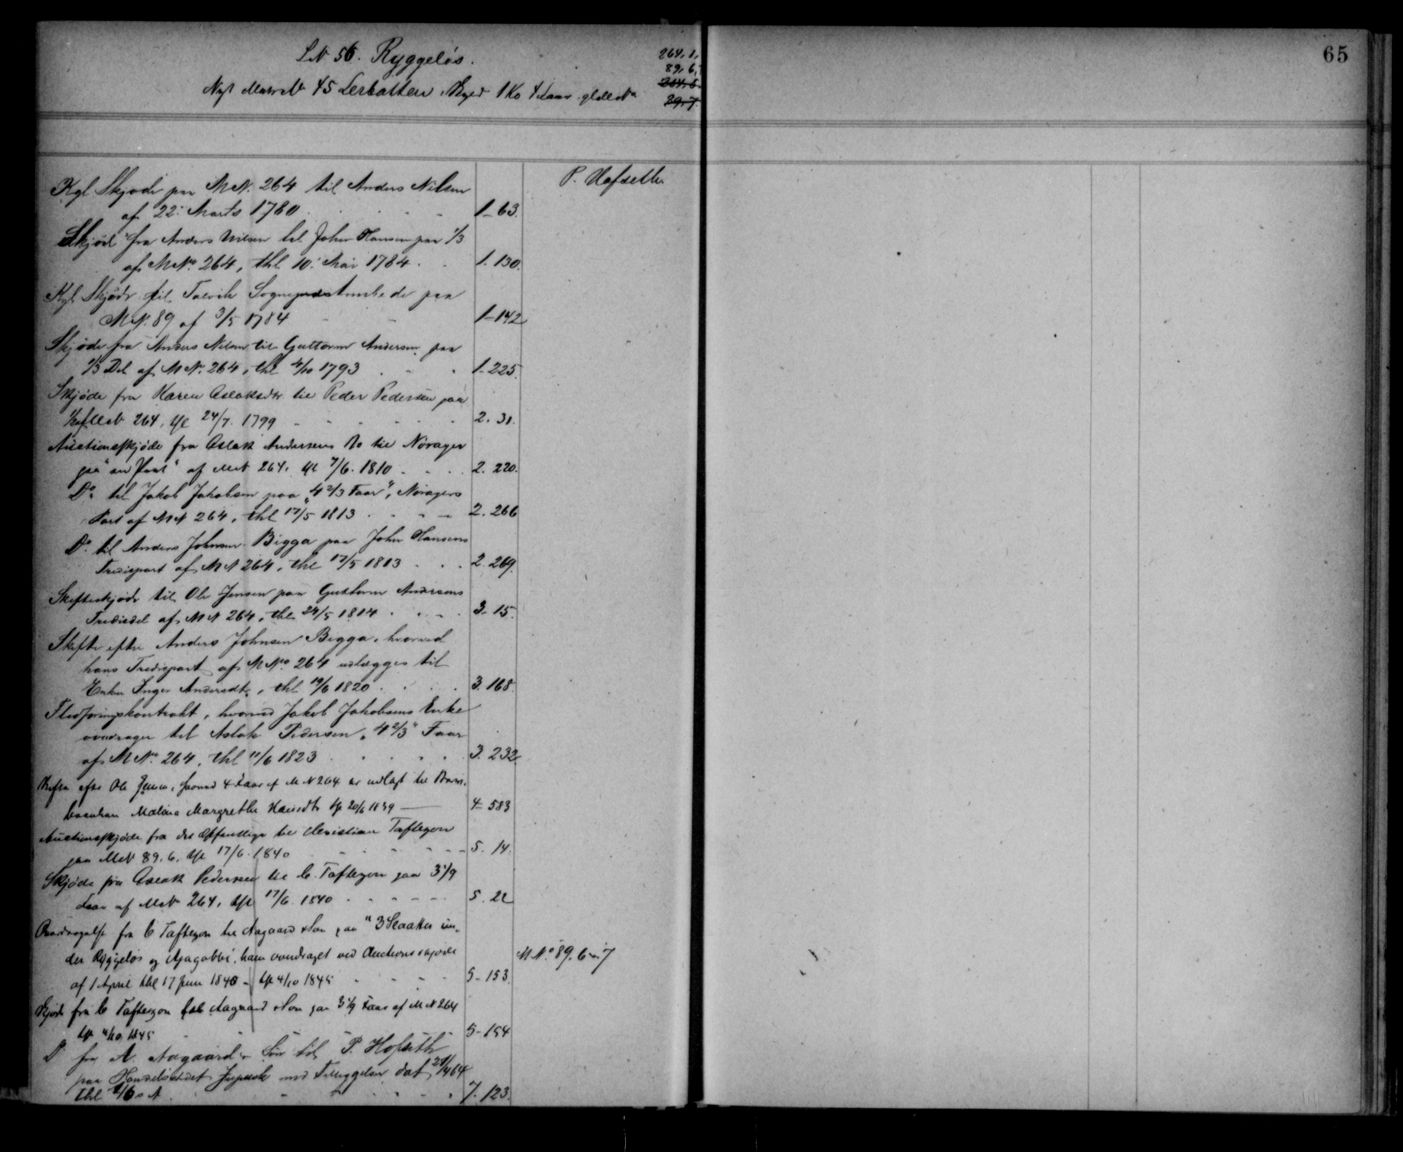 LN 56. Ryggeløs.
264,1,
89,6,7
Nyt Matr N 45 Lerbakken Skyld 1 Ko 4 Laar gl MN
264,5
29,7
65
P. Hofseth
Kgl Skjøde paa M N. 264 til Anders Nilsen
af 22: Marts 1780 1-63.
Skjøde fra Anders Nilsen til John Hansen paa 1/3
af M No 264, thl 10: Mai 1784 1. 130.
Kgl Skjøde til Talvik Sogne paa
M N. 89 af 3/5 1784 1-142
Skjøde fra Anders Nilsen til Guttorm Andersen paa
1/3 Del af M N. 264, thl 4/10 1793 1-225.
Skjøde fra Karen Aslaksdr til Peder Pedersen paa
264, thl 24/7. 1799 2. 31.
Auctionsskjøde fra Aslak Andersens Bo til Norager
paa "en Part" af M N 264. thl 7/6. 1810 2. 220.
Do til Jakob Jakobsen paa "4 2/3 Faar", Noragers
Part af M N 264, thl 17/5 1813 2. 266
Do til Anders Johnsen Bigga paa John Hansens
Trediepart af M N 264, thl 17/5 1813 2. 269.
Skifteskjøde til Ole Jensen paa Guttorm Andersens
Trediedel af M N 264, thl 24/5 1814 3-15.
Skifte efter Anders Johnsen Bigga, hvorved
hans Trediepart af M No 264 udlægges til
Enken Inger Andersdtr, thl 19/6 1820 3. 168
Fledføringskontrakt, hvorved Jakob Jakobsens Enke
overdrager til Aslak Pedersen "4 2/3" Faar
af M N. 264, thl 11/6 1823 3. 232
Skifte efter Ole Jensen, hvorved 4 Laar af M N 264 er udlagt til Barne-
barnet Malene Margrethe Hansdtr thl 20/6 1839 4-583
Auctionsskjøde fra det Offentlige til Christian Taftezon
paa M N 89. 6. thl 17/6. 1840 5. 14.
Skjøde fra Aslak Pedersen til C. Taftezon paa 3 1/9
Faar af M N 264, thl 17/6. 1840 5. 22
Overdragelse fra C Taftezon til Aagaard & Søn paa "3 Slaatter un-
der Ryggeløs og Ajagobbi, ham overdraget ved Auctionsskjøde
af 1 April thl 17 Juni 1840 - thl 4/10 1845 5-153.
M No 89. 6 - 7
Skjøde fra C Taftezon til Aagaard & Søn paa 3 1/9 Faar af M N 264
thl 4/10 1845 5-154
Do fra A. Aagaard & Søn til P. Hofseth
paa Handelsstedet med Tilliggelser dat 21/4 64
thl 9/6 s A. 7. 123.